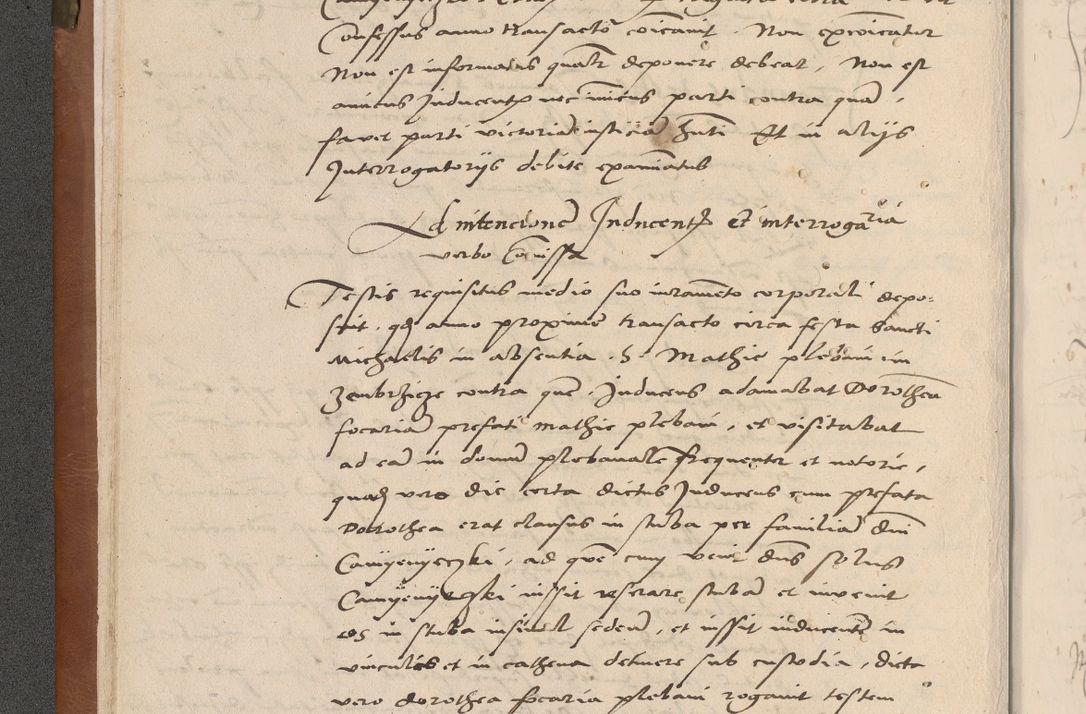 Confessus anno transacto coicavit. Non excoicatur
Non est informatus qualr deponere debeat, Non est
amicus Inducentis nec imicus parti contra quam,
favet parti victoriam iusticiam hnti Et in alijs
Interrogatorijs debite examinatus
Ad intencionem Inducentis et interrogaria
verbo Comissa
Testis requisitus medio suo iuramento corporali depo-
suit, qd anno proxime transacto circa festa Sancti
Michaelis in absentia h. Mathie plebani in
Zembrzicze contra quem Inducens adamabat Dorothea
focariam prefati mathie plebani, et visitabat
ad eam in domum plebanale frequenter et notorie,
quadam vero die certa dictus Inducens cum prefata
Dorothea erat clausus in stuba per familiam dni
Camyenyeczki, ad quem cum venit dns solus
Camyenyeczki iussit reserare stubam et invenit
eos in stuba insimul sedentes, et iussit inducentem in
vinculis et in cathena detinere sub custodia, dicta
vero dorothea focaria plebani rogavit testem